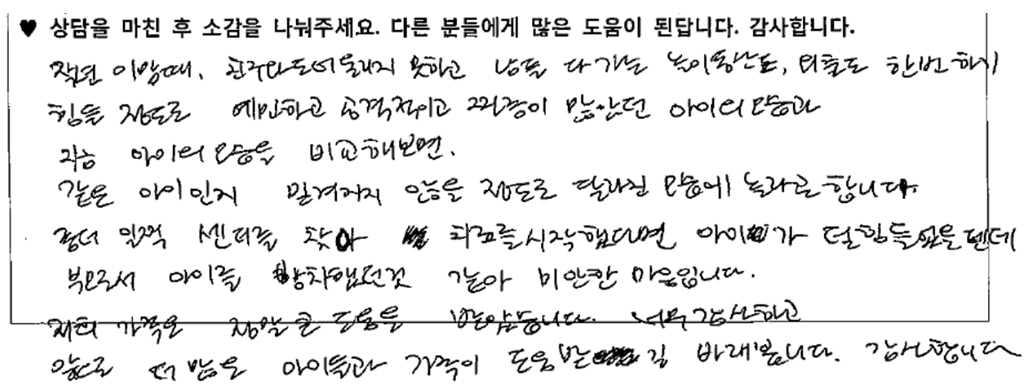 ♥ 상담을 마친 후 소감을 나눠주세요. 다른 분들에게 많은 도움이 된답니다. 감사합니다.
작년 이맘때, 친구와도 어울리지 못하고 남들 다 가는 놀이동산도, 외출도 한번 하기
힘들 정도로 예민하고 공격적이고 짜증이 많았던 아이의 모습과
지금 아이의 모습을 비교해보면,
같은 아이인지 믿겨지지 않을 정도로 달라진 모습에 놀라곤 합니다.
좀더 일찍 센터를 찾아 치료를 시작했다면 아이가 덜 힘들었을텐데
부모로서 아이를 방치했던것 같아 미안한 마음입니다.
저희 가족은 정말 큰 도움을 받았습니다. 너무 감사하고
앞으로 더 많은 아이들과 가족이 도움받길 바래봅니다. 감사합니다